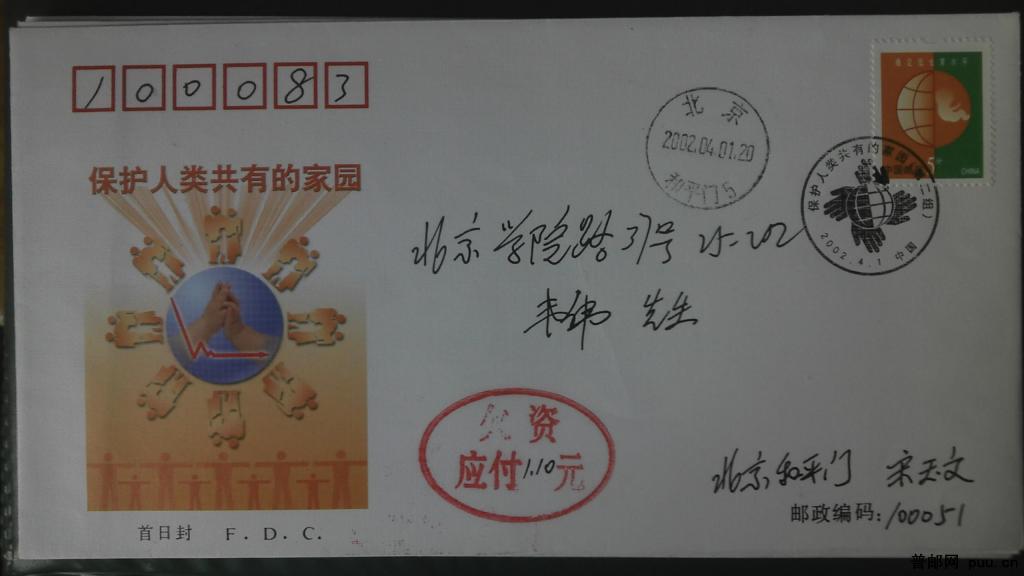 100083
保护人类共有的家园
首日封 F. D. C.
北京
2002.04.01.20
和平门5
CHINA
保护人类共有的家园(二组)
2002.4.1 中国
北京学院路31号 25-202
韦伟 先生
欠 资
应付1.10元
北京和平门 宋玉文
邮政编码:100051
普邮网 puu.cn